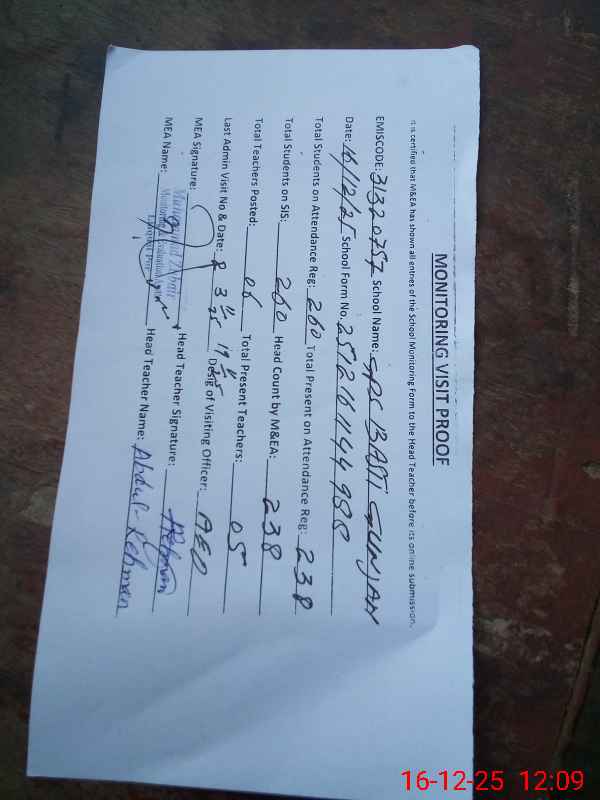 MONITORING VISIT PROOF
It is certified that M&EA has shown all entries of the School Monitoring Form to the Head Teacher before its online submission.
EMISCODE: 31320757 School Name: GPS BASTI GUNJAN
Date: 16/12/25 School Form No. 251216114498
Total Students on Attendance Reg: 260 Total Present on Attendance Reg: 238
Total Students on SIS: 260 Head Count by M&EA: 238
Total Teachers Posted: 06 Total Present Teachers: 05
Last Admin Visit No & Date: 8 3 19 Desig of Visiting Officer: AEO
MEA Signature: Head Teacher Signature: ARehman
MEA Name: Muhammad Zubair Head Teacher Name: Abdul-Rehman
Monitoring & Evaluation
16-12-25 12:09